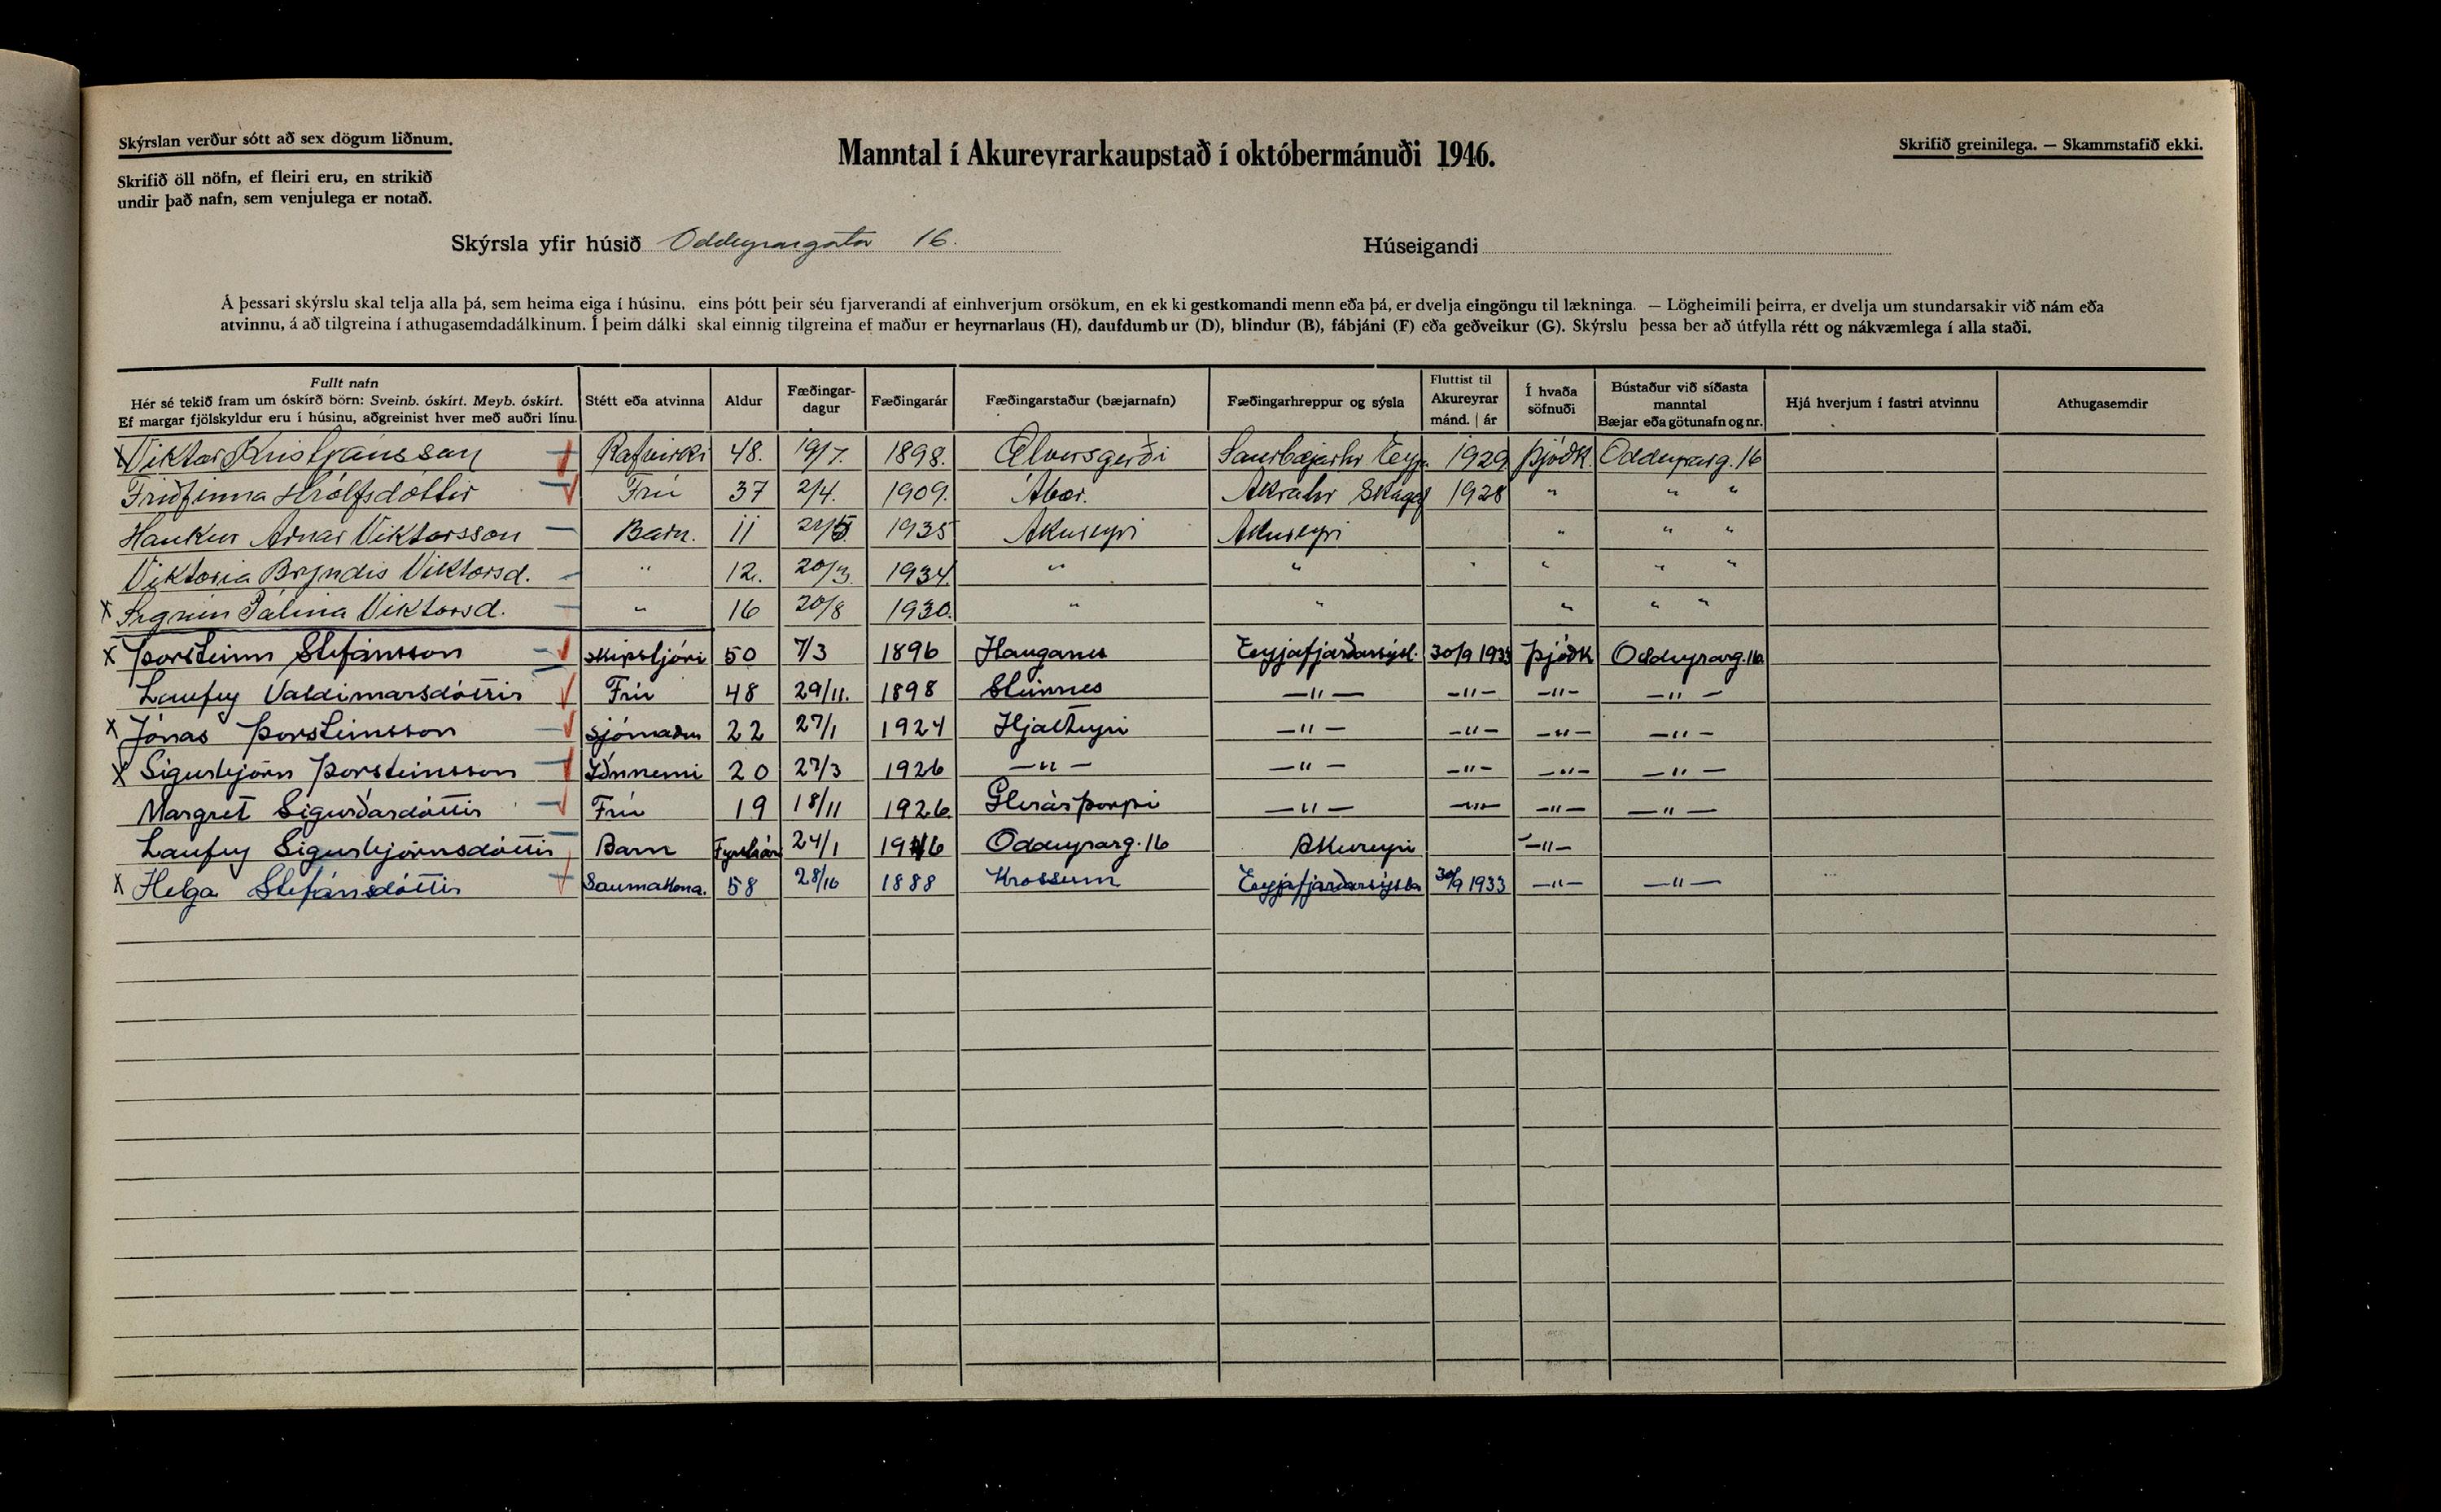 Skýrslan verður sótt að sex dögum liðnum.
Manntal í Akureyrarkaupstað í októbermánuði 1946.
Skrifið greinilega. — Skammstafið ekki.
Skrifið öll nöfn, ef fleiri eru, en strikið
undir það nafn, sem venjulega er notað.
Skýrsla yfir húsið Oddeyrargata 16. Húseigandi
Á þessari skýrslu skal telja alla þá, sem heima eiga í húsinu, eins þótt þeir séu fjarverandi af einhverjum orsökum, en ekki gestkomandi menn eða þá, er dvelja eingöngu til lækninga. — Lögheimili þeirra, er dvelja um stundarsakir við nám eða
atvinnu, á að tilgreina í athugasemdadálkinum. Í þeim dálki skal einnig tilgreina ef maður er heyrnarlaus (H), daufdumbur (D), blindur (B), fábjáni (F) eða geðveikur (G). Skýrslu þessa ber að útfylla rétt og nákvæmlega í alla staði.
Fullt nafn
Hér sé tekið fram um óskírð börn: Sveinb. óskírt. Meyb. óskírt.
Ef margar fjölskyldur eru í húsinu, aðgreinist hver með auðri línu.
Stétt eða atvinna
Aldur
Fæðingar-
dagur
Fæðingarár
Fæðingarstaður (bæjarnafn)
Fæðingarhreppur og sýsla
Fluttist til
Akureyrar
mánd. | ár
Í hvaða
söfnuði
Bústaður við síðasta
manntal
Bæjar eða götunafn og nr.
Hjá hverjum í fastri atvinnu
Athugasemdir
x Viktor Kristjánsson Rafvirki 48. 19/7. 1898. Saurbæjarhr Eyj. 1929 Þjóðk. Oddeyrarg. 16
Friðfinna Hrólfsdóttir Frú 37 2/4. 1909. Ábær. Akrahr Skagf 1928 " " "
Haukur Arnar Viktorsson Barn. 11 1935 Akureyri Akureyri " " "
Viktoria Bryndis Viktorsd. " 12. 20/3. 1934. " " " " " "
x Sigrún Pálína Viktorsd. " 16 20/8 1930. " " " " "
x Þorsteinn Stefánsson Skipstjóri 50 7/3 1896 Hauganes Eyjafjarðarsýsl. 30/9 1933 Þjóðk Oddeyrarg. 16.
Laufey Valdimarsdóttir Frú 48 29/11. 1898 —"— —"— —"— —"—
x Jónas Þorsteinsson Sjómaður 22 27/1 1924 Hjalteyri —"— —"— —"— —"—
x Sigurbjörn Þorsteinsson Iðnnemi 20 27/3 1926 —"— —"— —"— —"— —"—
Margret Sigurðardóttir Frú 19 18/11 1926. Glerárþorpi —"— —"— —"— —"—
Laufey Sigurbjörnsdóttir Barn 24/1 1946 Oddeyrarg. 16 Akureyri —"—
x Helga Stefánsdóttir Saumakona. 58 28/10 1888 Krossum Eyjafjarðarsýsla 30/9 1933 —"— —"—